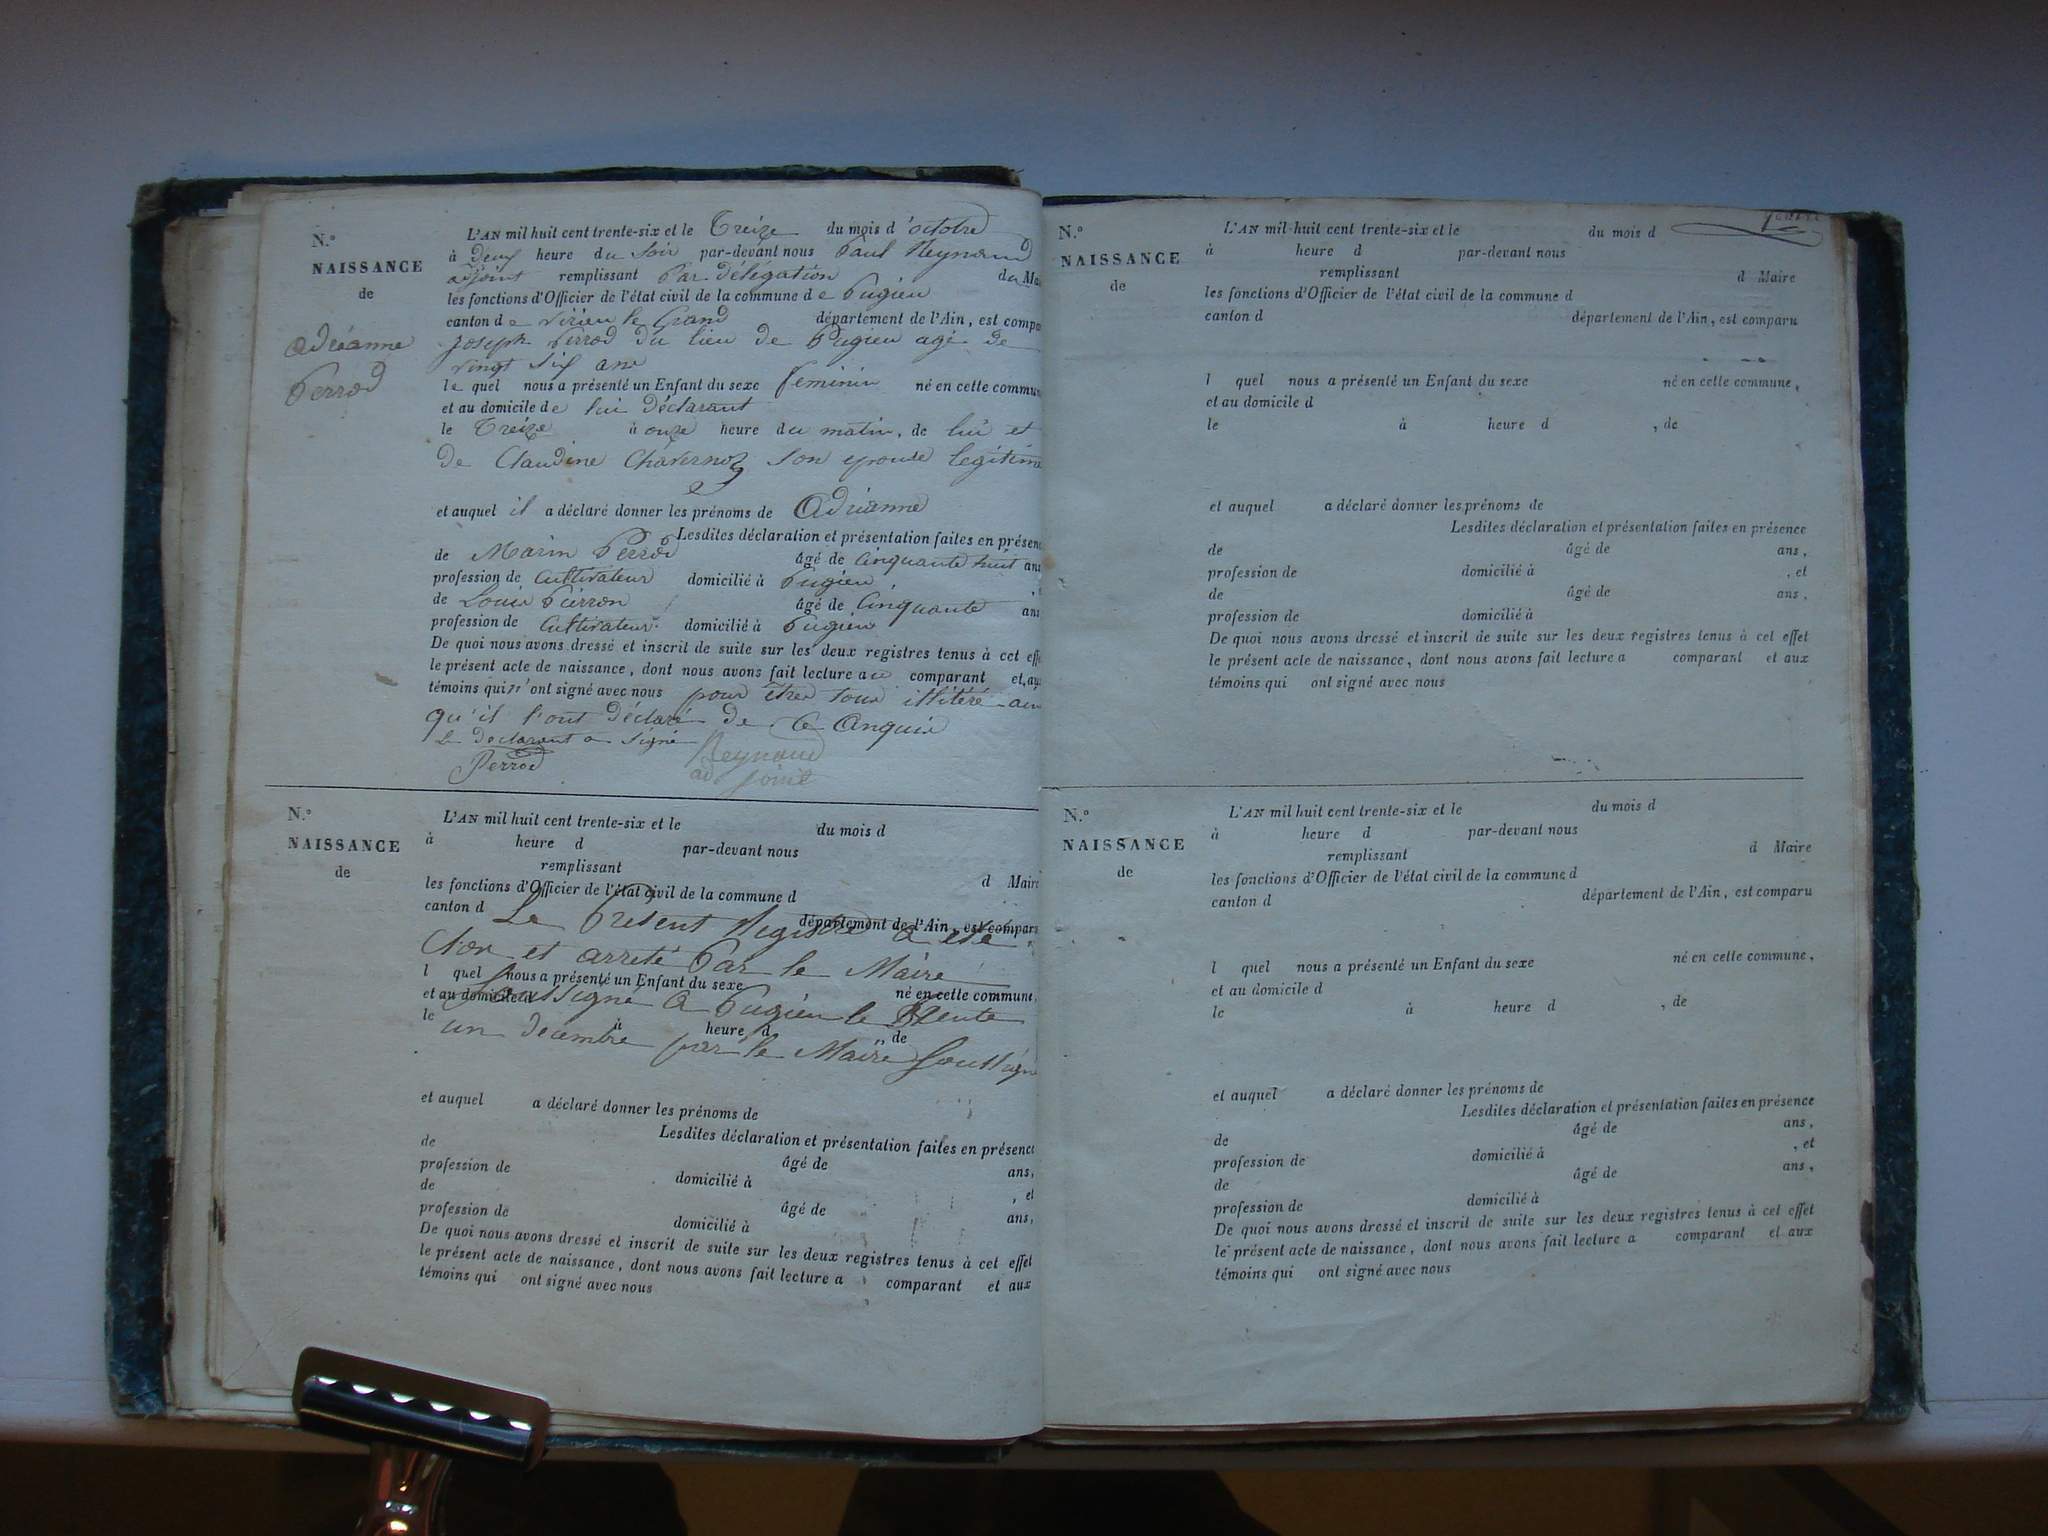 N.°
NAISSANCE
de
Adréanne
Perrod
L'AN mil huit cent trente-six et le Treize du mois d'octobre
à deux heure du Soir par-devant nous Paul Reynaud
adjoint remplissant Par délégation du Mai
les fonctions d'Officier de l'état civil de la commune de Pugieu
canton de virieu le Grand département de l'Ain, est compa
Joseph Perrod du lieu de Pugieu agé de
vingt six ans
le quel nous a présenté un Enfant du sexe feminin né en cette commun
et au domicile de lui déclarant
le Treize à onze heure du matin, de lui et
de Claudine Chavernoz Son epouse legitime
et auquel il a déclaré donner les prénoms de Adrianne
Lesdites déclaration et présentation faites en présen
de Marin Perrod âgé de Cinquante huit ans
profession de Cultivateur domicilié à Pugieu
de Louis Pierron âgé de Cinquante ans
profession de Cultivateur domicilié à Pugieu
De quoi nous avons dressé et inscrit de suite sur les deux registres tenus à cet effe
le présent acte de naissance, dont nous avons fait lecture au comparant et aux
témoins qui n'ont signé avec nous pour être tous illitéré ain
qu'il l'ont déclaré de Ce Enquis
Le declarant a signé
Perrod
Reynaud
adjoint
N.°
NAISSANCE
de
L'AN mil huit cent trente-six et le du mois d
à heure d par-devant nous
remplissant d Maire
les fonctions d'Officier de l'état civil de la commune d
canton d département de l'Ain, est comparu
Le Présent Registre a été
Clos et arreté Par le Maire
l quel nous a présenté un Enfant du sexe né en cette commune,
et au domicile d
Soussigné A Pugieu le Trente
le à heure d , de
un decembre par le Maire Soussign
et auquel a déclaré donner les prénoms de
Lesdites déclaration et présentation faites en présence
de âgé de ans,
profession de domicilié à , et
de âgé de ans,
profession de domicilié à
De quoi nous avons dressé et inscrit de suite sur les deux registres tenus à cet effet
le présent acte de naissance, dont nous avons fait lecture a comparant et aux
témoins qui ont signé avec nous
N.°
NAISSANCE
de
L'AN mil huit cent trente-six et le du mois d
à heure d par-devant nous
remplissant d Maire
les fonctions d'Officier de l'état civil de la commune d
canton d département de l'Ain, est comparu
l quel nous a présenté un Enfant du sexe né en cette commune,
et au domicile d
le à heure d , de
et auquel a déclaré donner les prénoms de
Lesdites déclaration et présentation faites en présence
de âgé de ans,
profession de domicilié à , et
de âgé de ans,
profession de domicilié à
De quoi nous avons dressé et inscrit de suite sur les deux registres tenus à cet effet
le présent acte de naissance, dont nous avons fait lecture a comparant et aux
témoins qui ont signé avec nous
N.°
NAISSANCE
de
L'AN mil huit cent trente-six et le du mois d
à heure d par-devant nous
remplissant d Maire
les fonctions d'Officier de l'état civil de la commune d
canton d département de l'Ain, est comparu
l quel nous a présenté un Enfant du sexe né en cette commune,
et au domicile d
le à heure d , de
et auquel a déclaré donner les prénoms de
Lesdites déclaration et présentation faites en présence
de âgé de ans,
profession de domicilié à , et
de âgé de ans,
profession de domicilié à
De quoi nous avons dressé et inscrit de suite sur les deux registres tenus à cet effet
le présent acte de naissance, dont nous avons fait lecture a comparant et aux
témoins qui ont signé avec nous